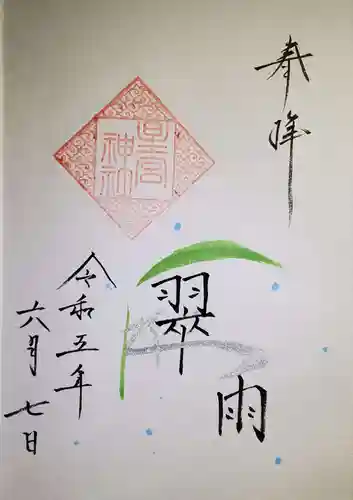 奉拝
翠雨
令和五年
六月七日
星宮
神社